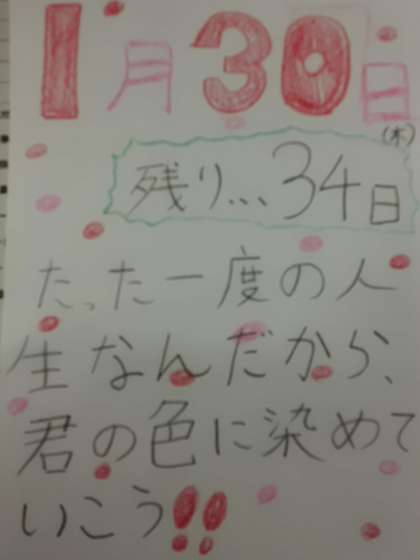 1月30日
(木)
残り...34日
たった一度の人
生なんだから、
君の色に染めて
いこう!!